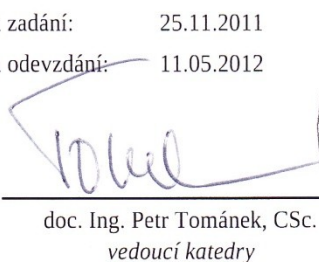 zadání: 25.11.2011
odevzdání: 11.05.2012
doc. Ing. Petr Tománek, CSc.
vedoucí katedry